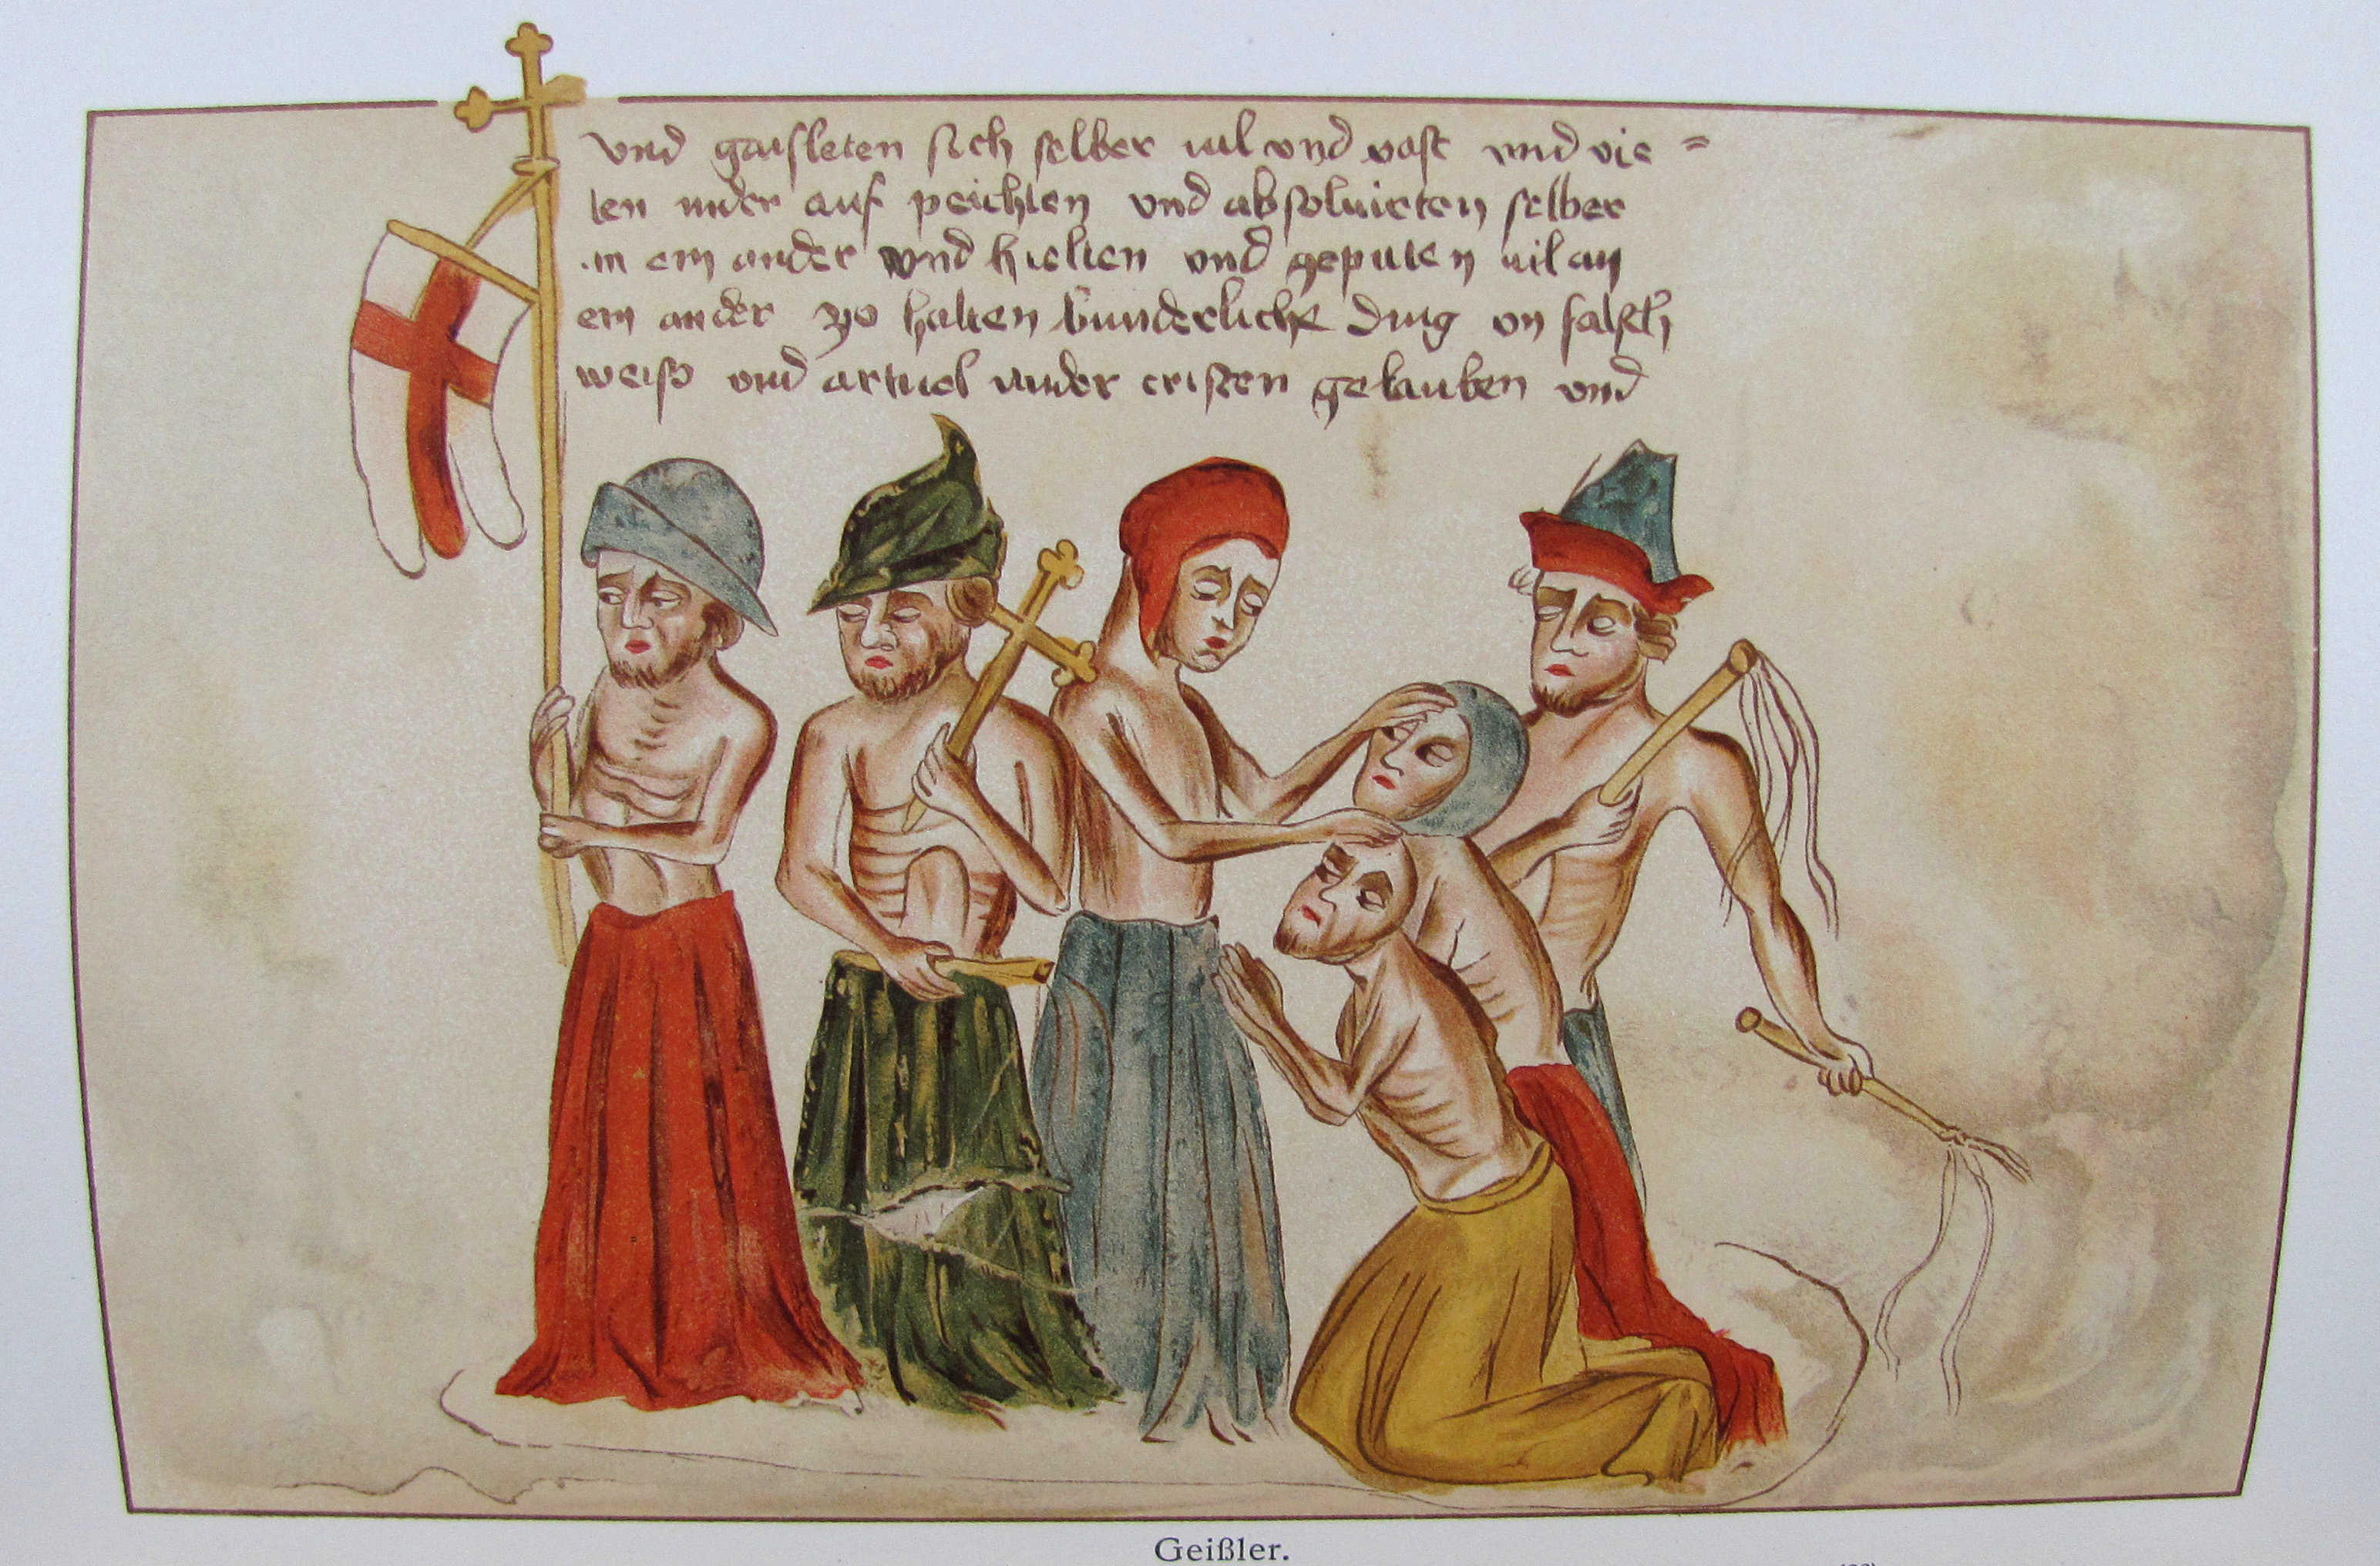 vnd gaisleten sich selber uil vnd vast vnd vie =
len nider auf peichten vnd absoluirten selber
ein ander vnd hielten vnd geputen uil an
ein ander zo halten bunderliche ding vn falsch
weiss vnd artucl vnder cristen gelauben vnd
Geißler.